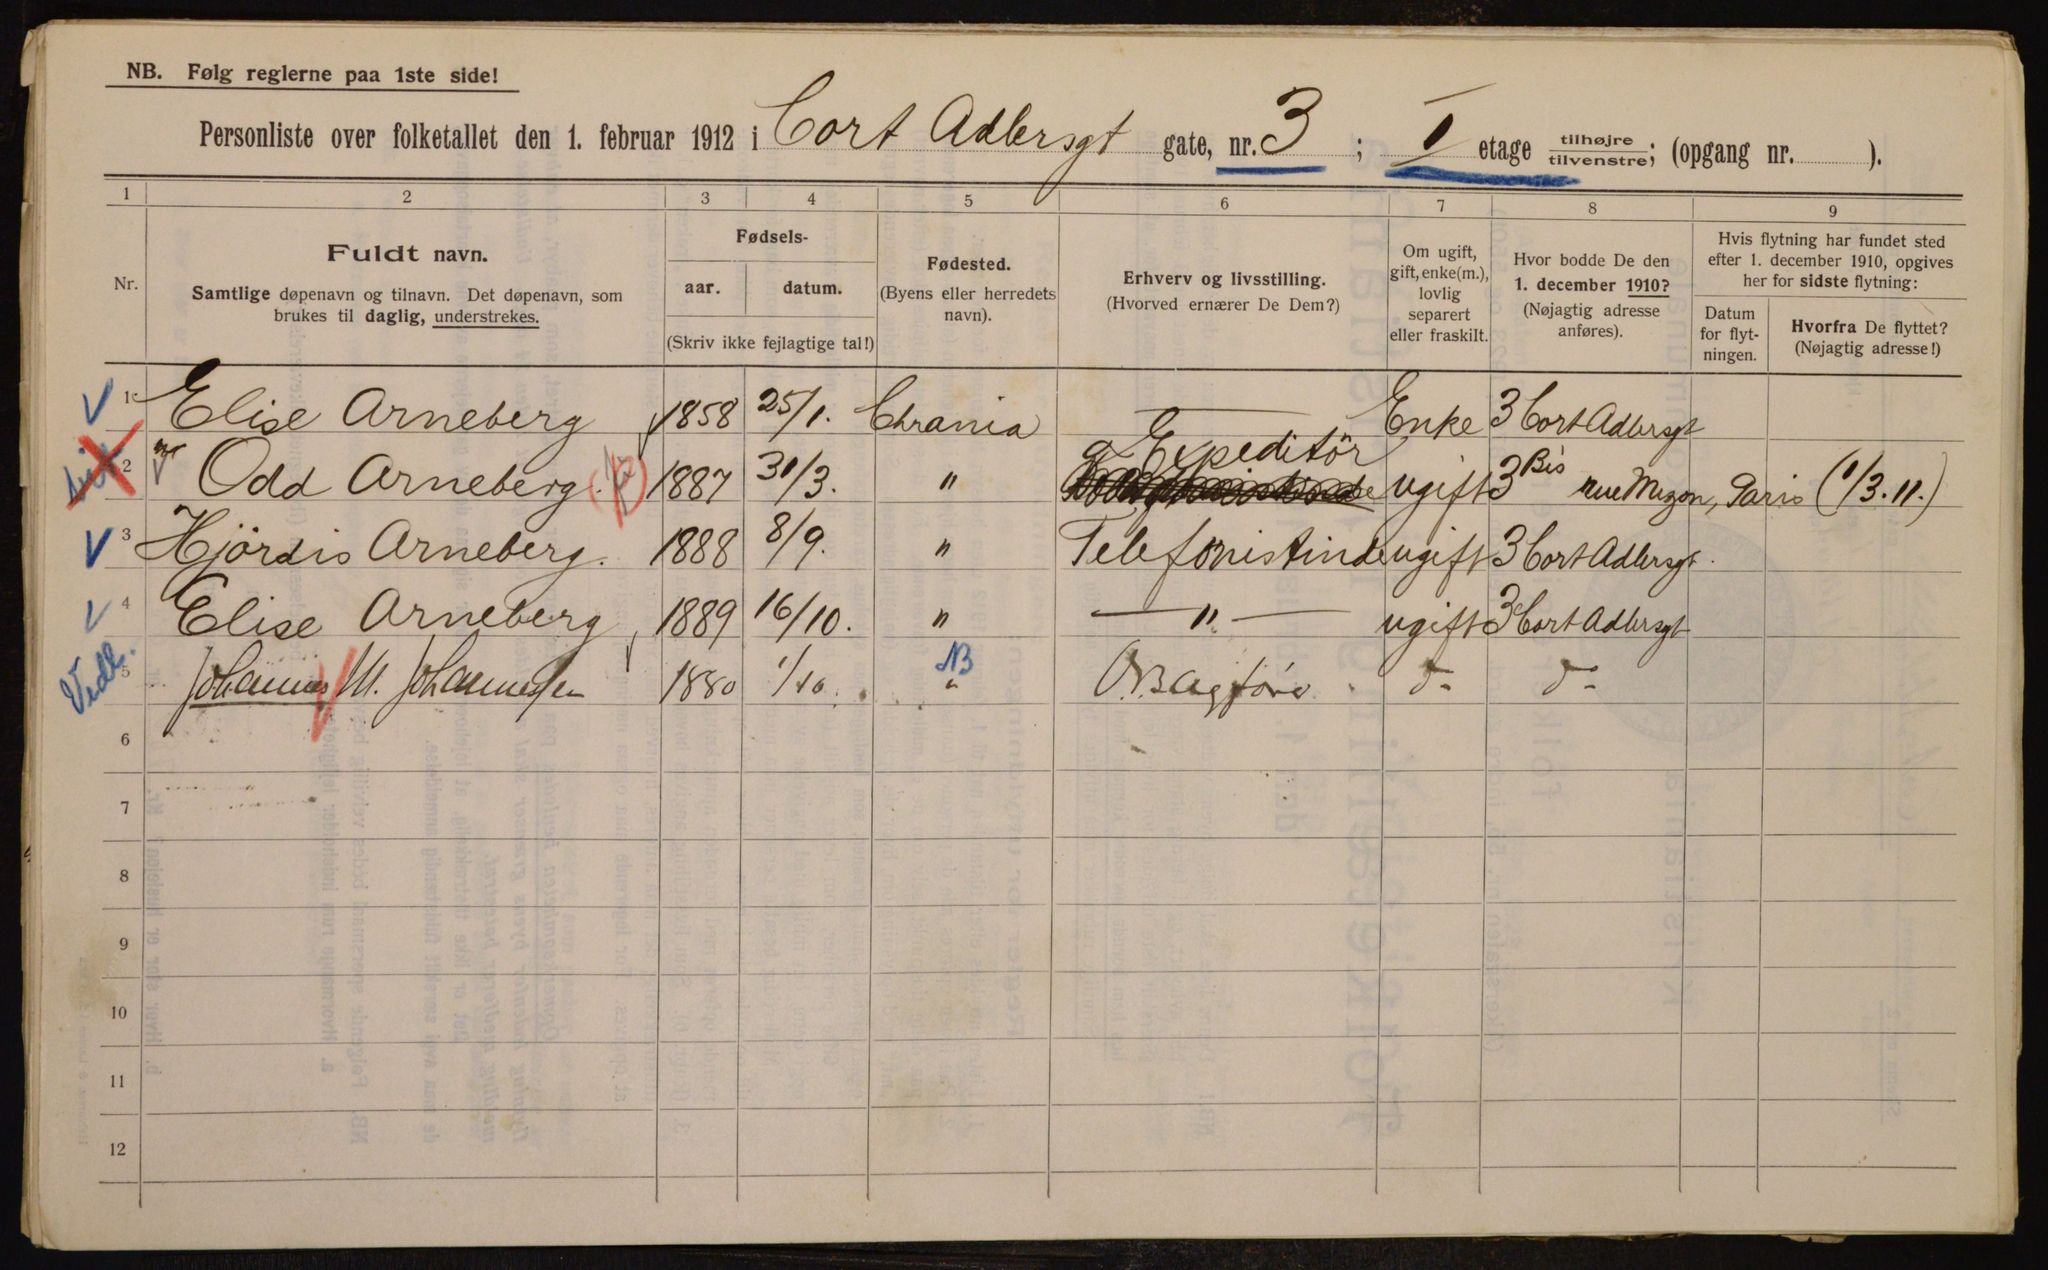 NB. Følg reglerne paa 1ste side!
Personliste over folketallet den 1. februar 1912 i Cort Adlersgt gate, nr. 3 ; I etage tilhøjre tilvenstre; (opgang nr. ).
1 2 3 4 5 6 7 8 9
Nr.
Fuldt navn.
Samtlige døpenavn og tilnavn. Det døpenavn, som
brukes til daglig, understrekes.
Fødsels-
aar. datum.
(Skriv ikke fejlagtige tal!)
Fødested.
(Byens eller herredets
navn).
Erhverv og livsstilling.
(Hvorved ernærer De Dem?)
Om ugift,
gift, enke(m.),
lovlig
separert
eller fraskilt.
Hvor bodde De den
1. december 1910?
(Nøjagtig adresse
anføres).
Hvis flytning har fundet sted
efter 1. december 1910, opgives
her for sidste flytning:
Datum
for flyt-
ningen.
Hvorfra De flyttet?
(Nøjagtig adresse!)
1 Elise Arneberg 1858 25/1. Chrania — Enke 3 Cort Adlersgt
2 Odd Arneberg. 1887 31/3. " Expeditör ugift 3 Bis rue Mizon, Paris (1/3.11.)
3 Hjördis Arneberg. 1888 8/9. " Telefonistinde ugift 3 Cort Adlersgt.
4 Elise Arneberg 1889 16/10. " — " — ugift 3 Cort Adlersgt
Vedl. 5 Johannes M. Johannessen 1880 1/10. NB "
6
7
8
9
10
11
12